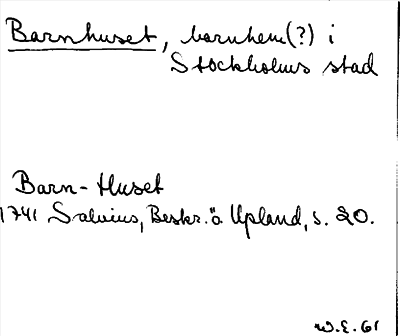 Barnhuset, barnhem(?) i
Stockholms stad
Barn-Huset
1741 Salvius, Beskr. ö. Upland, s. 20.
W.E. 61